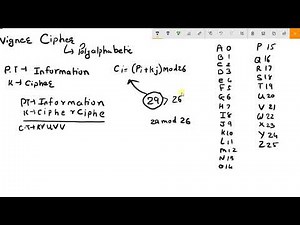 Vignee Cipher
Polyalphabetic
P.T → Information
K → Cipher
Ci = (Pi + kj) mod 26
PT → Information
K → Cipher Ciphe
29 > 26
29 mod 26
A 0
B 1
C 2
D 3
E 4
F 5
G 6
H 7
I 8
J 9
K 10
L 11
M 12
N 13
O 14
P 15
Q 16
R 17
S 18
T 19
U 20
V 21
W 22
X 23
Y 24
Z 25